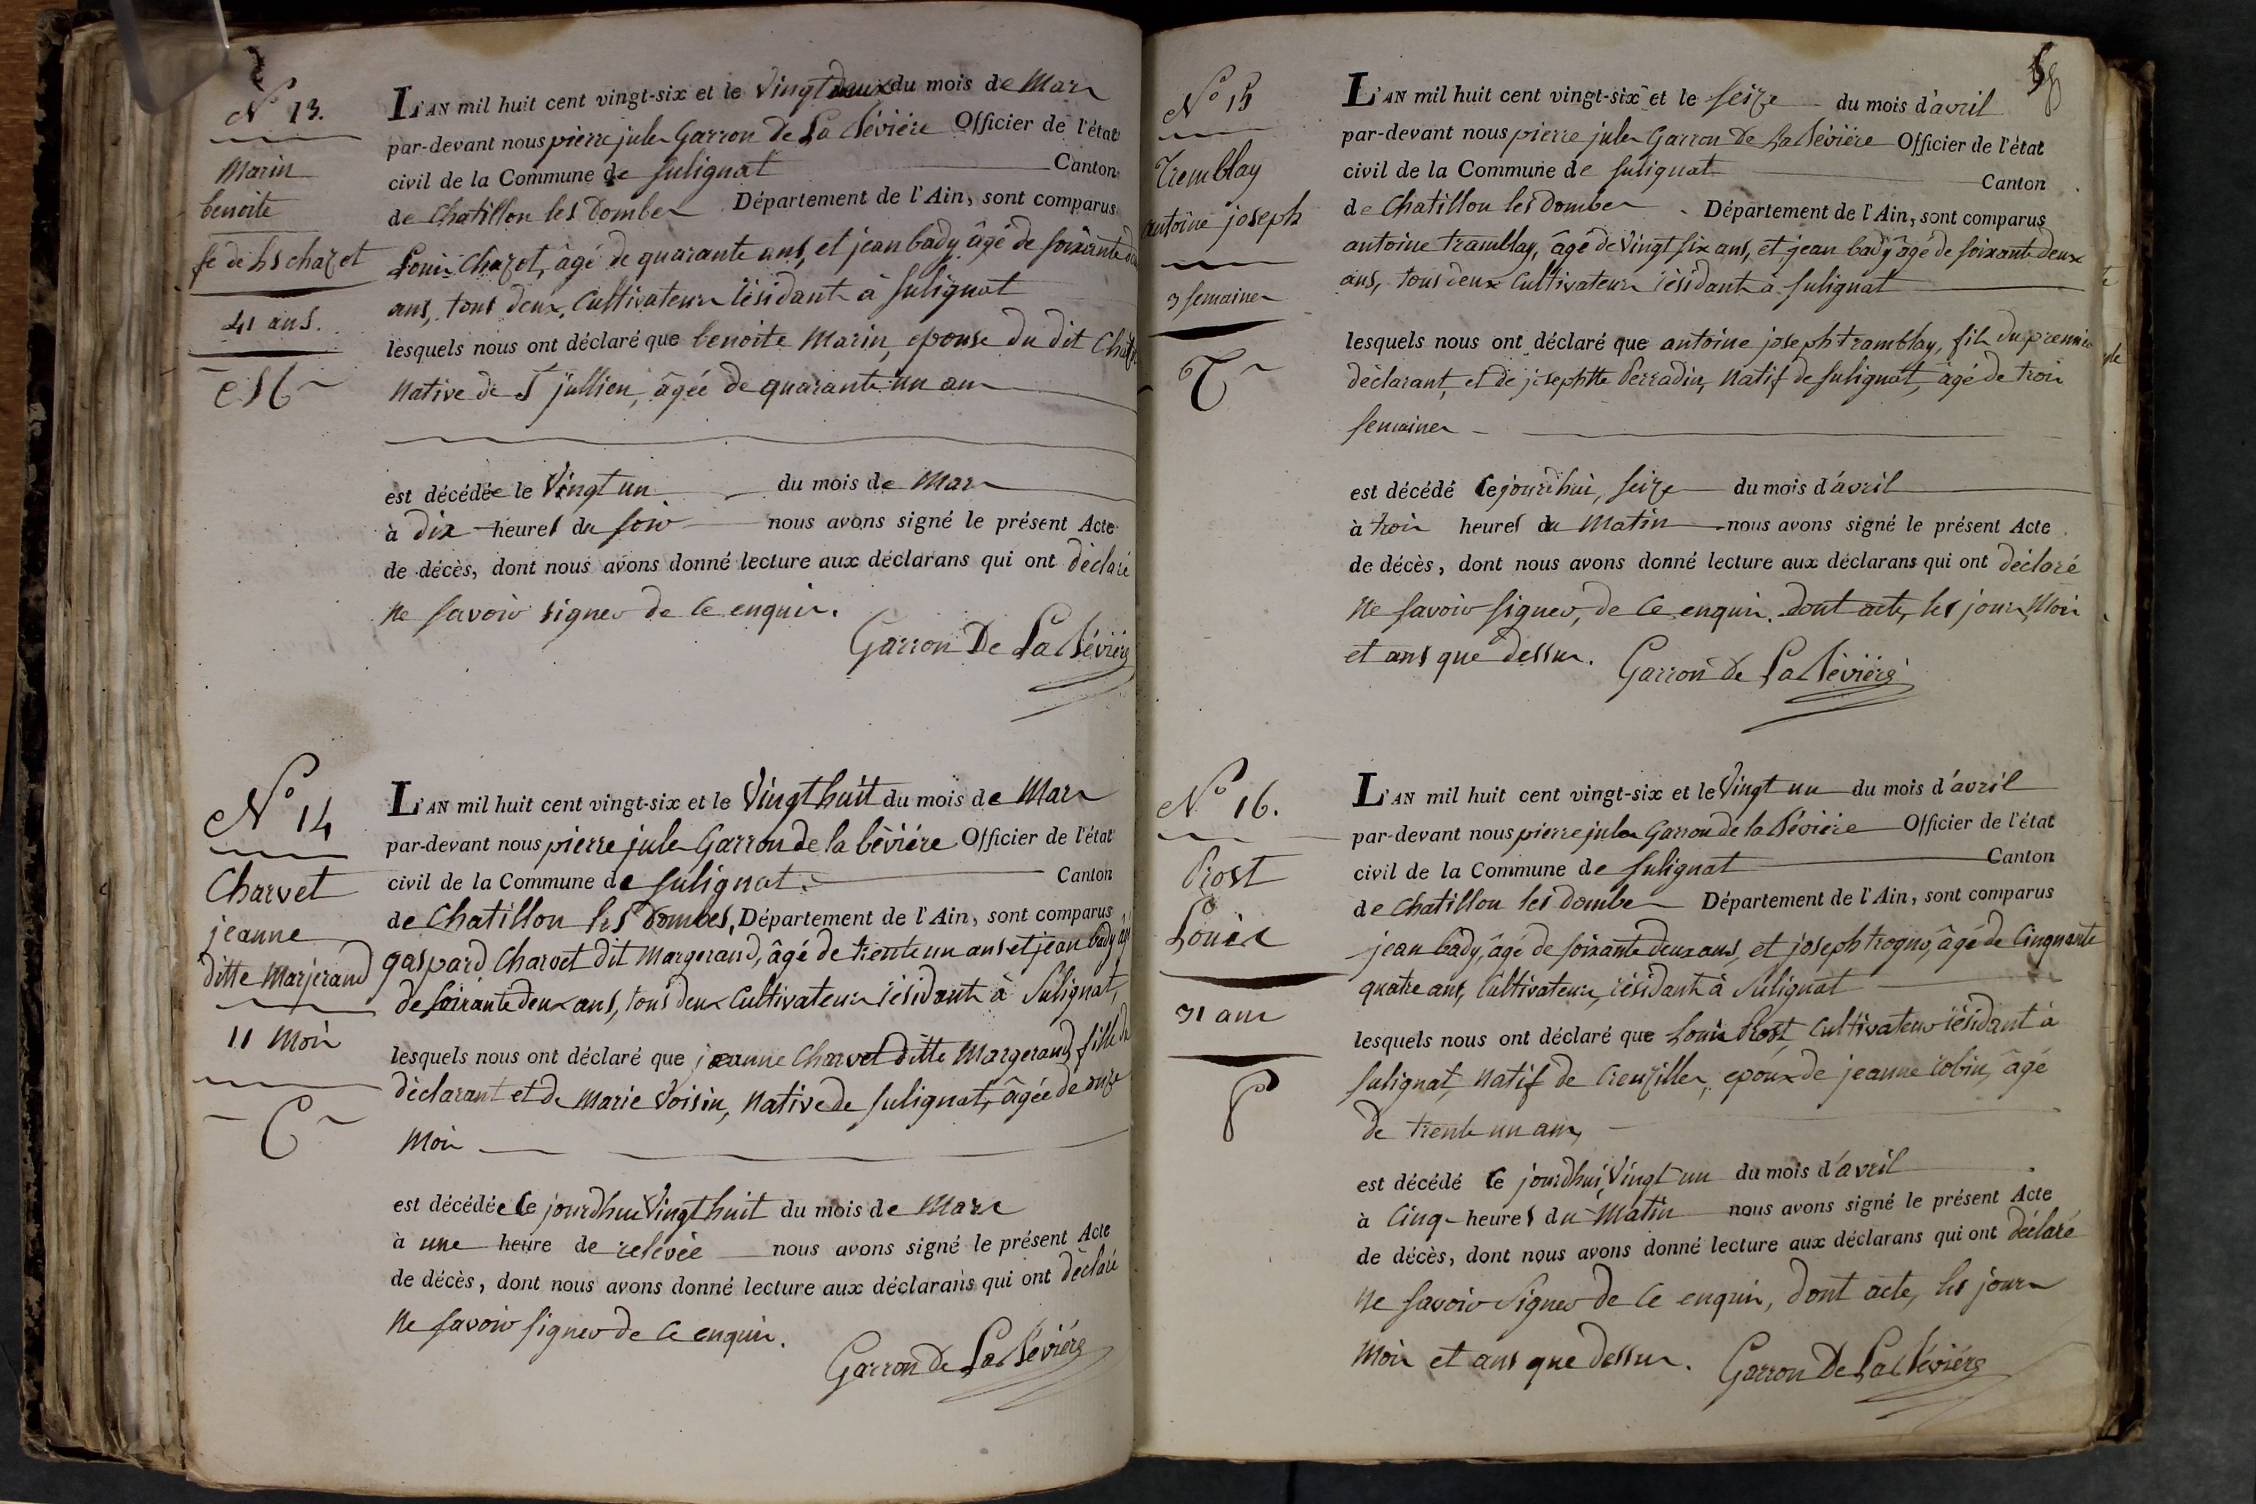 N° 13.
Marin
benoite
fe de Ls chazot
41 ans.
L'AN mil huit cent vingt-six et le Vingt deux du mois de Mars
par-devant nous pierre jules Garron De La Bévière Officier de l'état
civil de la Commune de Sulignat Canton
de Chatillon les Dombes Département de l'Ain, sont comparus
Louis Chazot, âgé de quarante ans, et jean bady âgé de soixante deux
ans, tous deux, Cultivateurs résidants à Sulignat
lesquels nous ont déclaré que benoite Marin, epouse du dit
Native de St jullien, âgée de quarante un ans
est décédée le Vingt un du mois de Mars
à dix heures du soir nous avons signé le présent Acte
de décès, dont nous avons donné lecture aux déclarans qui ont déclaré
ne savoir signer de ce enquis.
Garron De La Bévière
N° 14
Charvet
jeanne
ditte Marjerand
11 Mois
C
L'AN mil huit cent vingt-six et le Vingt huit du mois de Mars
par-devant nous pierre jules Garron de la bévière Officier de l'état
civil de la Commune de Sulignat. Canton
de Chatillon les Dombes, Département de l'Ain, sont comparus
gaspard Charvet dit Margerand, âgé de trente un ans et jean bady âgé
de soixante deux ans, tous deux Cultivateurs résidants à Sulignat,
lesquels nous ont déclaré que jeanne Charvet ditte Margerand, fille du
déclarant et de Marie Voisin, Native de Sulignat, âgée de onze
Mois
est décédée Ce jourdhui Vingt huit du mois de Mars
à une heure de relevée nous avons signé le présent Acte
de décès, dont nous avons donné lecture aux déclarans qui ont déclaré
ne savoir signer de ce enquis.
Garron De La Bévière
N° 15
Tremblay
antoine joseph
3 semaines
T
L'AN mil huit cent vingt-six et le seize du mois d'avril
par-devant nous pierre jules Garron De La Bévière Officier de l'état
civil de la Commune de Sulignat Canton
de Chatillon les Dombes Département de l'Ain, sont comparus
antoine tramblay, âgé de Vingt six ans, et jean bady âgé de soixante deux
ans, tous deux Cultivateurs résidants à Sulignat
lesquels nous ont déclaré que antoine joseph tramblay, fils du premier
déclarant, et de josephtte Perradin, Natif de Sulignat, âgé de trois
semaines
est décédé Ce jourdhui, seize du mois d'avril
à trois heures du Matin nous avons signé le présent Acte
de décès, dont nous avons donné lecture aux déclarans qui ont déclaré
Ne savoir signer, de ce enquis. dont acte, les jour, Mois
et ans que dessus.
Garron De La Bévière
N° 16.
Prost
Louis
31 ans
P
L'AN mil huit cent vingt-six et le Vingt un du mois d'avril
par-devant nous pierre jules Garron de la Bévière Officier de l'état
civil de la Commune de Sulignat Canton
de Chatillon les dombes Département de l'Ain, sont comparus
jean bady, âgé de soixante deux ans, et joseph trogno, âgé de Cinquante
quatre ans, Cultivateurs, résidants à Sulignat
lesquels nous ont déclaré que Louis Prost, Cultivateur résidant à
Sulignat, Natif de Creuzilles, époux de jeanne robin, âgé
de trente un ans,
est décédé Ce jourdhui, Vingt un du mois d'avril
à Cinq heures du Matin nous avons signé le présent Acte
de décès, dont nous avons donné lecture aux déclarans qui ont déclaré
Ne savoir signer de ce enquis, dont acte, les jours
Mois et ans que dessus.
Garron De La Bévière